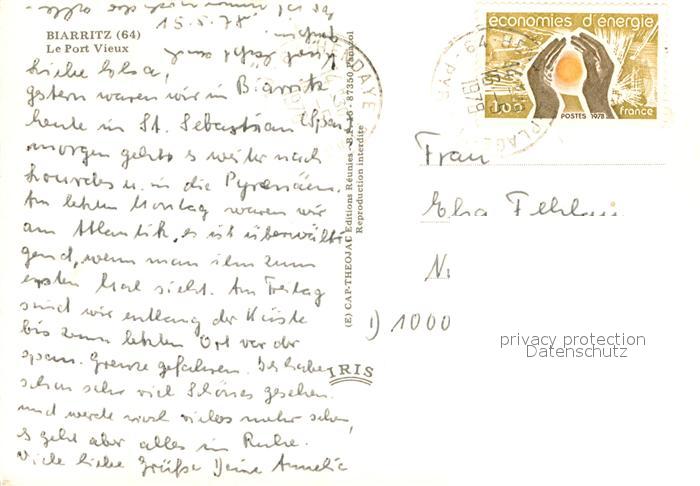 15.5.78
BIARRITZ (64)
Le Port Vieux
Liebe Elsa,
gestern waren wir in Biarritz
heute in St. Sebastian (Span
morgen geht es weiter nach
Lourdes u. in die Pyrenäen.
Am letzten Montag waren wir
am Atlantik, es ist überwälti
gend, wenn man ihn zum
ersten Mal sieht. Am Freitag
sind wir entlang der Küste
bis zum letzten Ort vor der
span. Grenze gefahren. Ich habe
schon sehr viel Schönes gesehen
und werde noch vieles mehr sehen,
es geht aber alles in Ruhe.
Viele liebe Grüße Deine Annelie
(E) CAP-THEOJAC Editions Réunies - B.P. 46 - 87350 Panazol
Reproduction interdite
IRIS
économies d'énergie
1,00
france
POSTES 1978
1978
Frau
Elsa
D 1000
privacy protection
Datenschutz